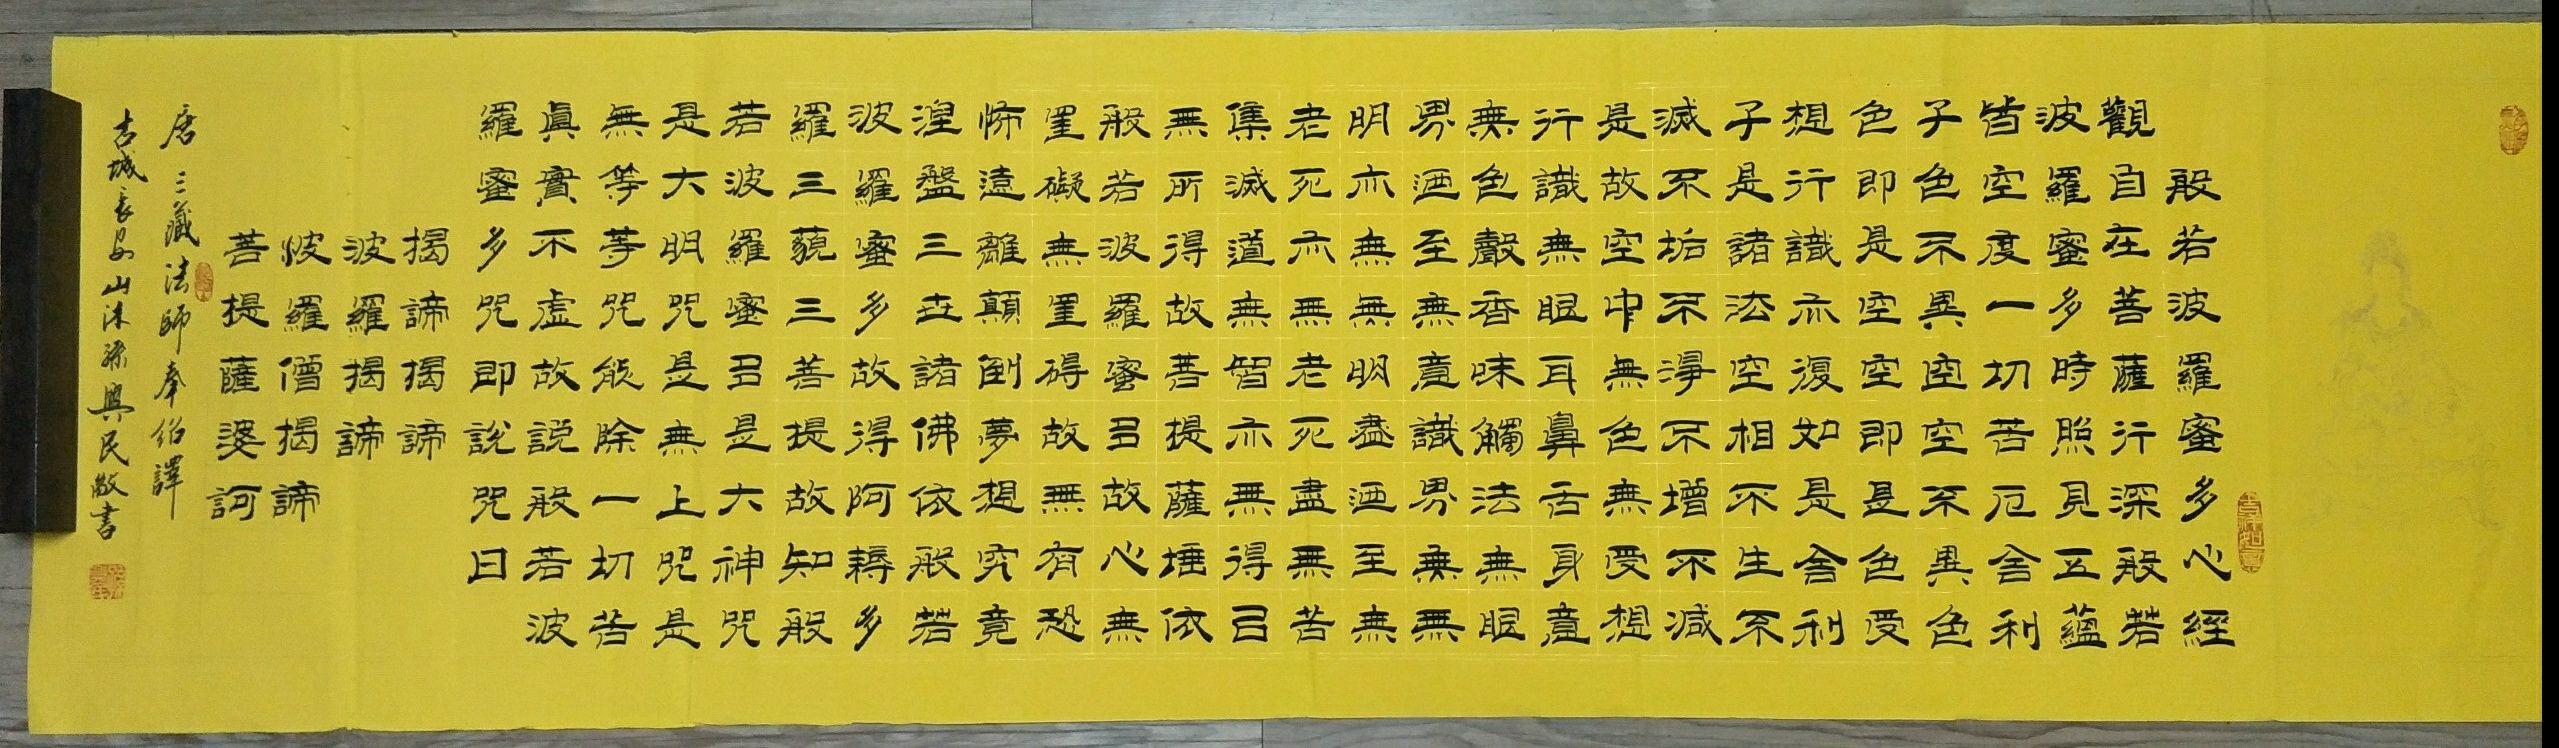 般若波羅蜜多心經
觀自在菩薩行深般若
波羅蜜多時照見五蘊
皆空度一切苦厄舍利
子色不異空空不異色
色即是空空即是色受
想行識亦復如是舍利
子是諸法空相不生不
滅不垢不淨不增不減
是故空中無色無受想
行識無眼耳鼻舌身意
無色聲香味觸法無眼
界迺至無意識界無無
明亦無無明盡迺至無
老死亦無老死盡無苦
集滅道無智亦無得㠯
無所得故菩提薩埵依
般若波羅蜜多故心無
罣礙無罣碍故無有恐
怖遠離顛倒夢想究竟
涅盤三世諸佛依般若
波羅蜜多故得阿耨多
羅三藐三菩提故知般
若波羅蜜多是大神咒
是大明咒是無上咒是
無等等咒能除一切苦
真實不虛故説般若波
羅蜜多咒即説咒曰
揭諦揭諦
波羅揭諦
波羅僧揭諦
菩提薩婆訶
唐三藏法師奉紹譯
古城長安山沐孫興民敬書
吉祥如意